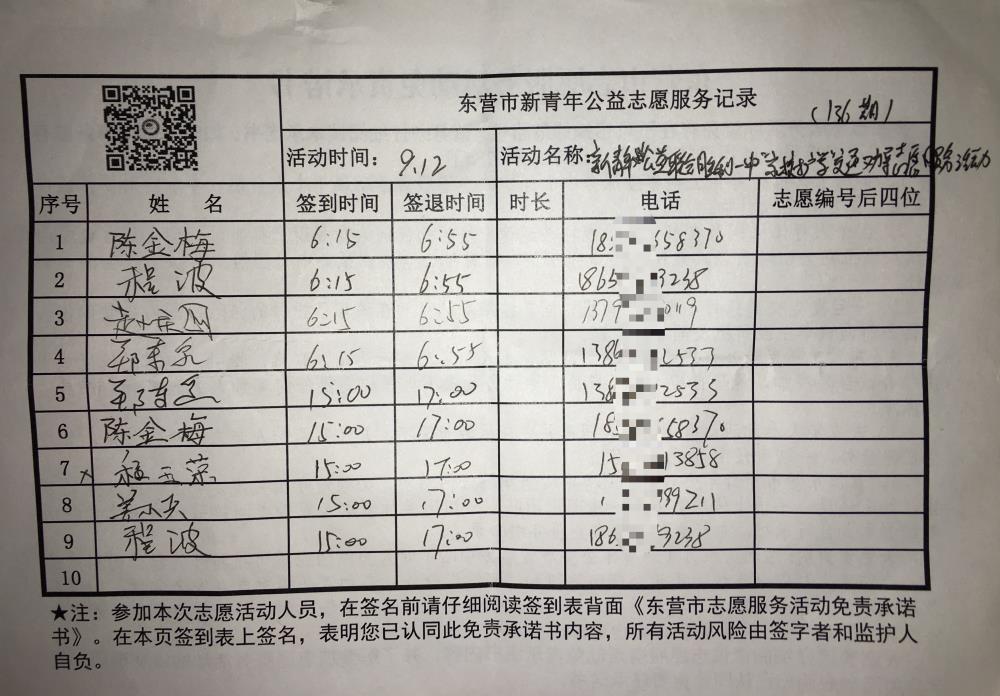 东营市新青年公益志愿服务记录 (136期)
活动时间: 9.12 活动名称:
序号 姓 名 签到时间 签退时间 时长 电话 志愿编号后四位
1 陈金梅 6:15 6:55 18 358370
2 程波 6:15 6:55 1865 3238
3 6:15 6:55 1379 0119
4 6:15 6:55 1386 2533
5 15:00 17:00 138 2533
6 陈金梅 15:00 17:00 18 58370
7 15:00 17:00 15 13858
8 15:00 17:00 1 399211
9 程波 15:00 17:00 186 3238
10
★注:参加本次志愿活动人员,在签名前请仔细阅读签到表背面《东营市志愿服务活动免责承诺
书》。在本页签到表上签名,表明您已认同此免责承诺书内容,所有活动风险由签字者和监护人
自负。